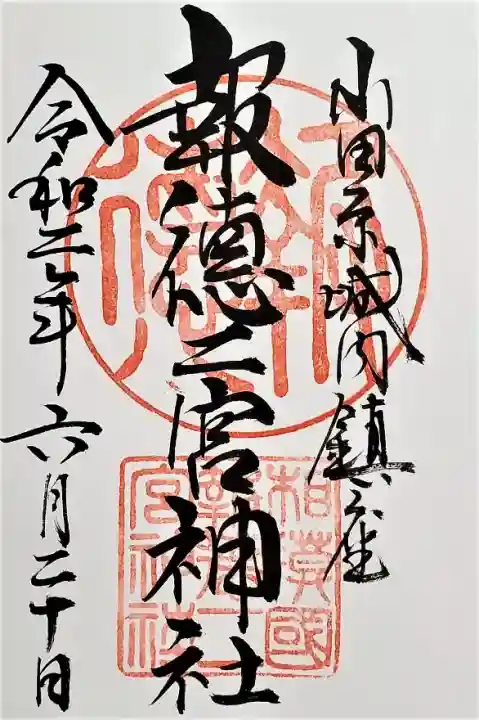 小田原城内鎮座
報徳二宮神社
令和二年六月二十日
相莫國
報徳二
宮神社